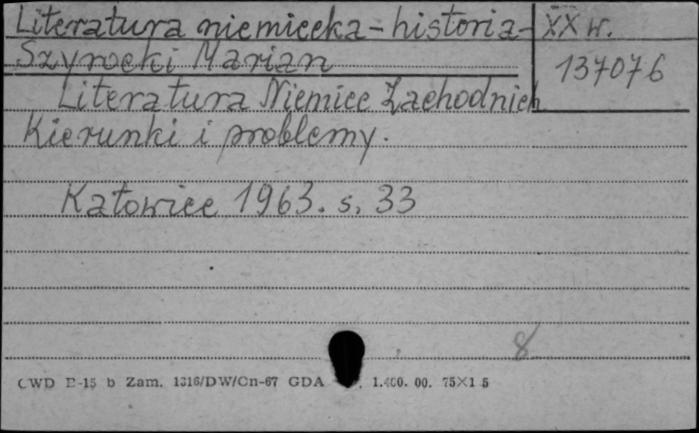 Literatura niemiecka - historia - XX w.
Szyrocki Marian
137076
Literatura Niemiec Zachodnich
Kierunki i problemy.
Katowice 1963. s. 33
8
CWD B-15 b Zam. 1316/DW/Cn-67 GDA 1.400.00. 75X1 5